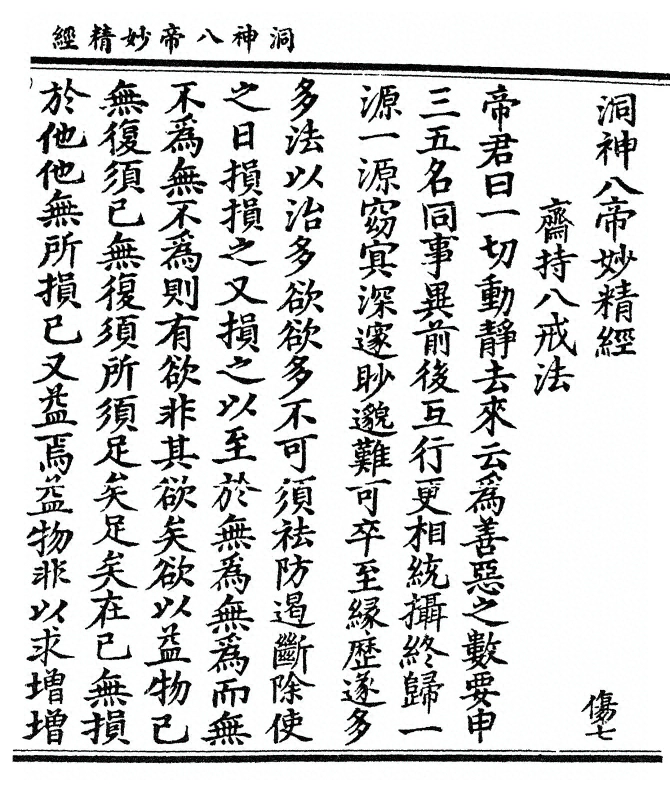 洞神八帝妙精經
洞神八帝妙精經
傷七
齋持八戒法
帝君曰一切動靜去來云爲善惡之數要申
三五名同事異前後互行更相統攝終歸一
源一源窈冥深邃眇邈難可卒至緣歷遂多
多法以治多欲欲多不可須祛防遏斷除使
之日損損之又損之以至於無爲無爲而無
不爲無不爲則有欲非其欲矣欲以益物已
無復須已無復須所須足矣足矣在已無損
於他他無所損已又益焉益物非以求增增